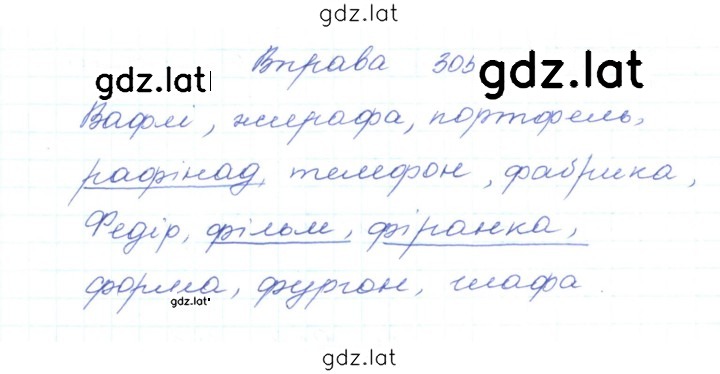 gdz.lat
Вправа 305
gdz.lat gdz.lat
Вафлі, жирафа, портфель,
рафінад, телефон, фабрика,
Федір, фільм, фіранка,
форма, фургон, шафа.
gdz.lat
gdz.lat